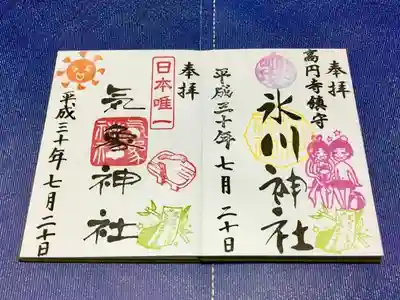 高円寺鎮守
奉拝
氷川神社
平成三十年 七月 二十日
奉拝
日本唯一
気象神社
平成三十年 七月 二十日